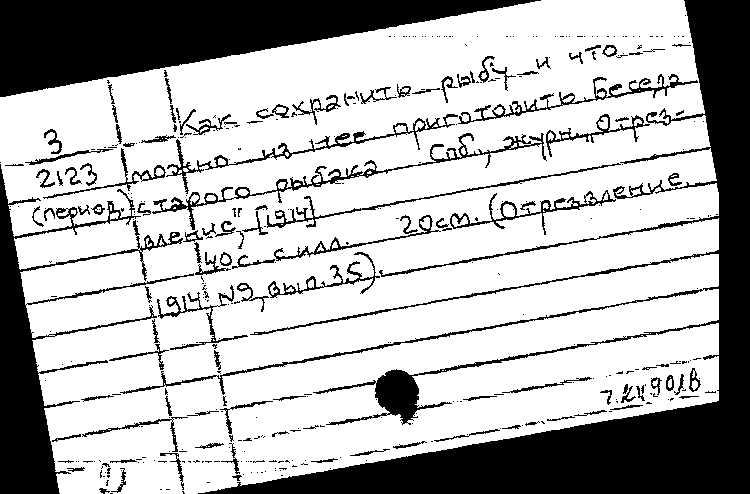 Как сохранить рыбу и что
3
можно из нее приготовить. Беседа
2123
старого рыбака. Спб., журн. „Отрез-
(период.)
вление", [1914]
40 с. с илл. 20см. (Отрезвление.
1914, №9, вып. 35).